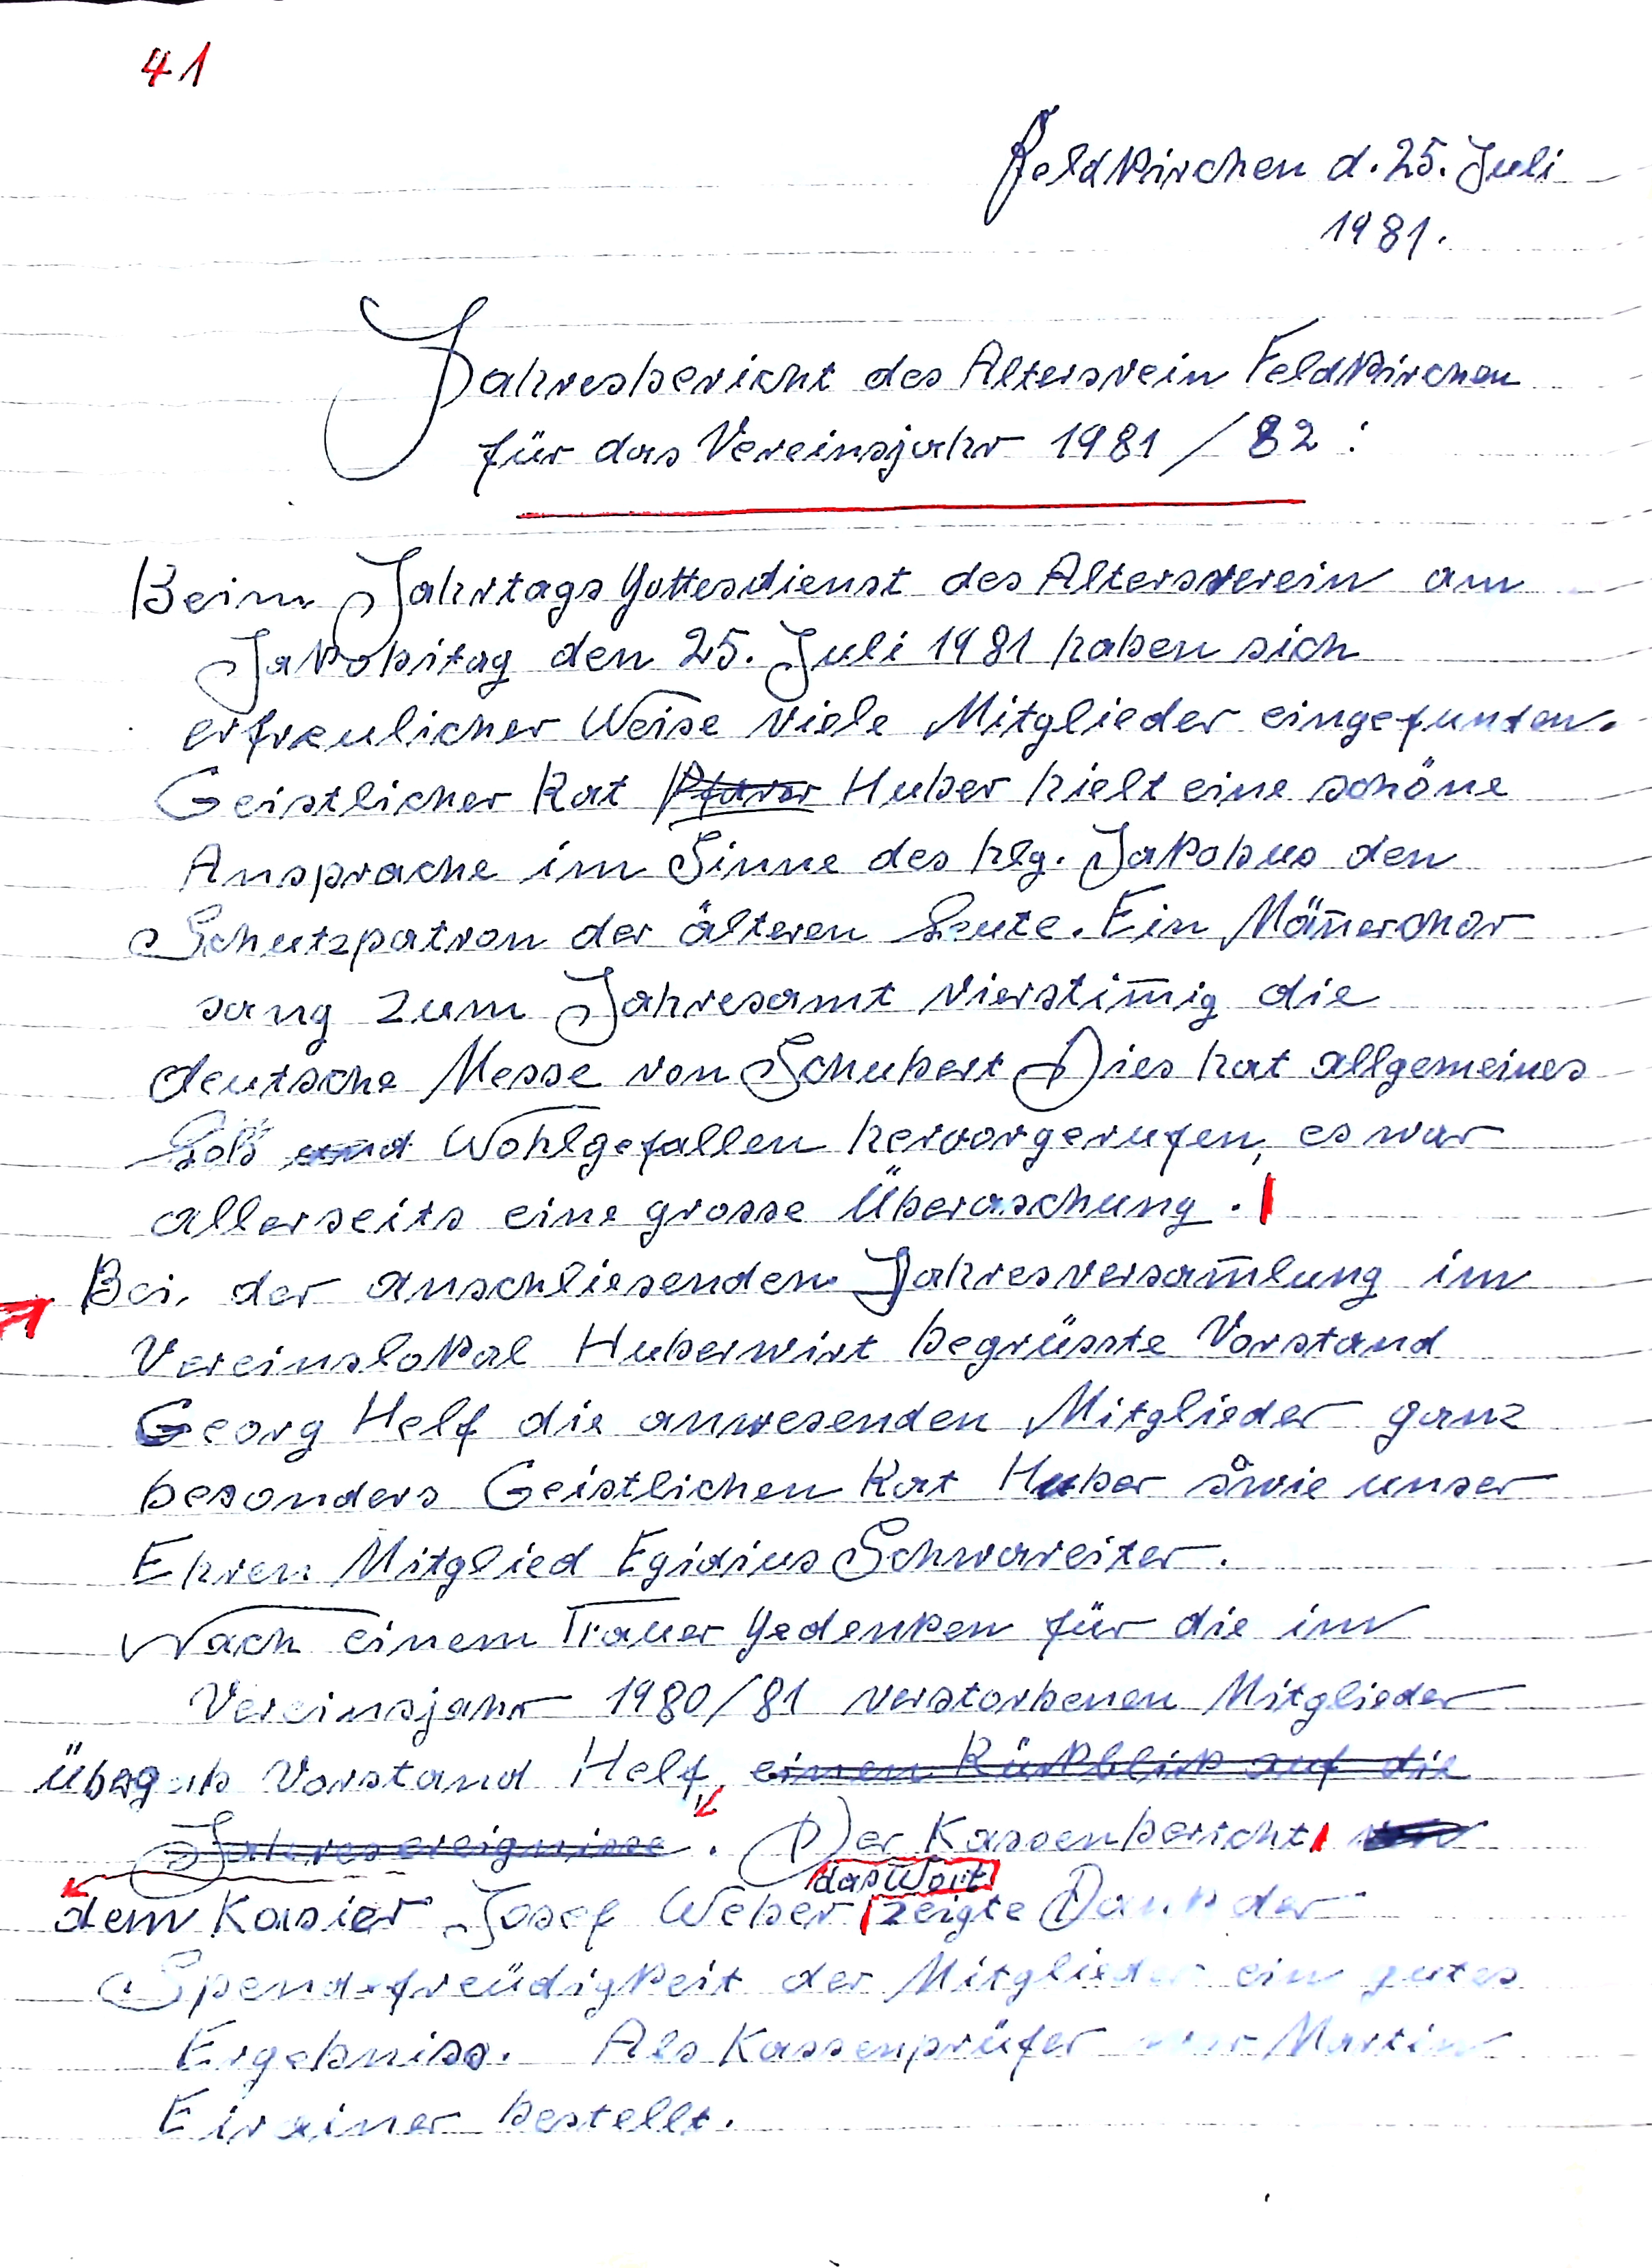 41
Feldkirchen d. 25. Juli
1981.
Jahresbericht des Altersverein Feldkirchen
für das Vereinsjahr 1981/82:
Beim Jahrtags Gottesdienst des Altersverein am
Jakobitag den 25. Juli 1981 haben sich
erfreulicher Weise viele Mitglieder eingefunden.
Geistlicher Rat Pfarrer Huber hielt eine schöne
Ansprache im Sinne des hlg. Jakobus den
Schutzpatron der älteren Leute. Ein Mañerchor
sang zum Jahresamt vierstim̄ig die
deutsche Messe von Schubert Dies hat allgemeines
Lob und Wohlgefallen hervorgerufen, es war
allerseits eine grosse Überaschung.
Bei der anschliesenden Jahresversam̄lung im
Vereinslokal Huberwirt begrüsste Vorstand
Georg Helf die anwesenden Mitglieder ganz
besonders Geistlichen Rat Huber sowie unser
Ehren Mitglied Egidius Schwareiter.
Nach einem Trauer Gedenken für die im
Vereinsjahr 1980/81 verstorbenen Mitglieder
übergab Vorstand Helf, einen Rükblik auf die
Jahresereignisse. Der Kassenbericht
das Wort
dem Kasier Josef Weber zeigte Dank der
Spendefreüdigkeit der Mitglieder ein gutes
Ergebniss. Als Kassenprüfer war Martin
Eirainer bestellt.